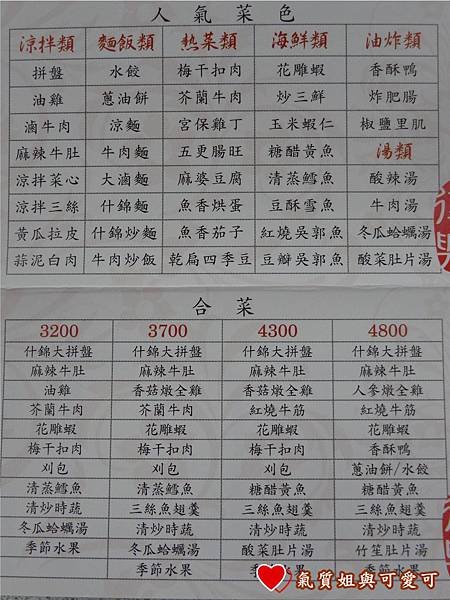 人氣菜色
涼拌類 麵飯類 熱菜類 海鮮類 油炸類
拼盤 水餃 梅干扣肉 花雕蝦 香酥鴨
油雞 蔥油餅 芥蘭牛肉 炒三鮮 炸肥腸
滷牛肉 涼麵 宮保雞丁 玉米蝦仁 椒鹽里肌
麻辣牛肚 牛肉麵 五更腸旺 糖醋黃魚 湯類
涼拌菜心 大滷麵 麻婆豆腐 清蒸鱈魚 酸辣湯
涼拌三絲 什錦麵 魚香烘蛋 豆酥雪魚 牛肉湯
黃瓜拉皮 什錦炒麵 魚香茄子 紅燒吳郭魚 冬瓜蛤蠣湯
蒜泥白肉 牛肉炒飯 乾扁四季豆 豆瓣吳郭魚 酸菜肚片湯
合菜
3200 3700 4300 4800
什錦大拼盤 什錦大拼盤 什錦大拼盤 什錦大拼盤
麻辣牛肚 麻辣牛肚 麻辣牛肚 麻辣牛肚
油雞 香菇燉全雞 香菇燉全雞 人參燉全雞
芥蘭牛肉 芥蘭牛肉 紅燒牛筋 紅燒牛筋
花雕蝦 花雕蝦 花雕蝦 花雕蝦
梅干扣肉 梅干扣肉 梅干扣肉 香酥鴨
刈包 刈包 刈包 蔥油餅/水餃
清蒸鱈魚 清蒸鱈魚 糖醋黃魚 糖醋黃魚
清炒時蔬 三絲魚翅羹 三絲魚翅羹 三絲魚翅羹
冬瓜蛤蠣湯 清炒時蔬 清炒時蔬 清炒時蔬
季節水果 冬瓜蛤蠣湯 酸菜肚片湯 竹笙肚片湯
季節水果
氣質姐與可愛可